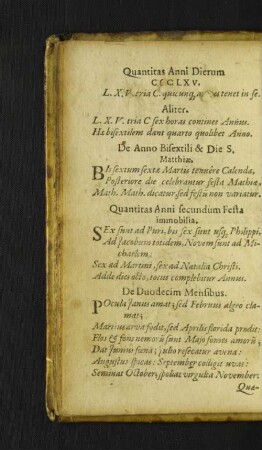 Quantitas Anni Dierum
CCCLXV.
L. X. V. tria C. quicunq, tenet in se.
Aliter.
L. X. V. tria C sex horas continet Annus.
Hæ bisextilem dant quarto quolibet Anno.
De Anno Bisextili & Die S.
Matthiæ.
BIssextum sextæ Martis tenuêre Calendæ,
Posteriore die celebrantur festa Mathiæ,
Math. Math. dicatur sed festū non variatur.
Quantitas Anni secundum Festa
immobilia.
SEx sunt ad Puri, bis sex sunt usq; Philippi,
Ad Jacobum totidem, Novem sunt ad Mi-
chaëlem:
Sex ad Martini, sex ad Natalia Christi.
Adde dies octo, totus complebitur Annus.
De Duodecim Mensibus.
POcula Janus amat, sed Februus algeo cla-
mat;
Martius arva fodit, sed Aprilis florida prodit:
Flos & fons nemorū sunt Majo fomes amorū;
Dat Junius fœna; Julio resecatur avena:
Augustus spicas: September colligit uvas:
Seminat October, spoliat virgulta November:
Quæ-